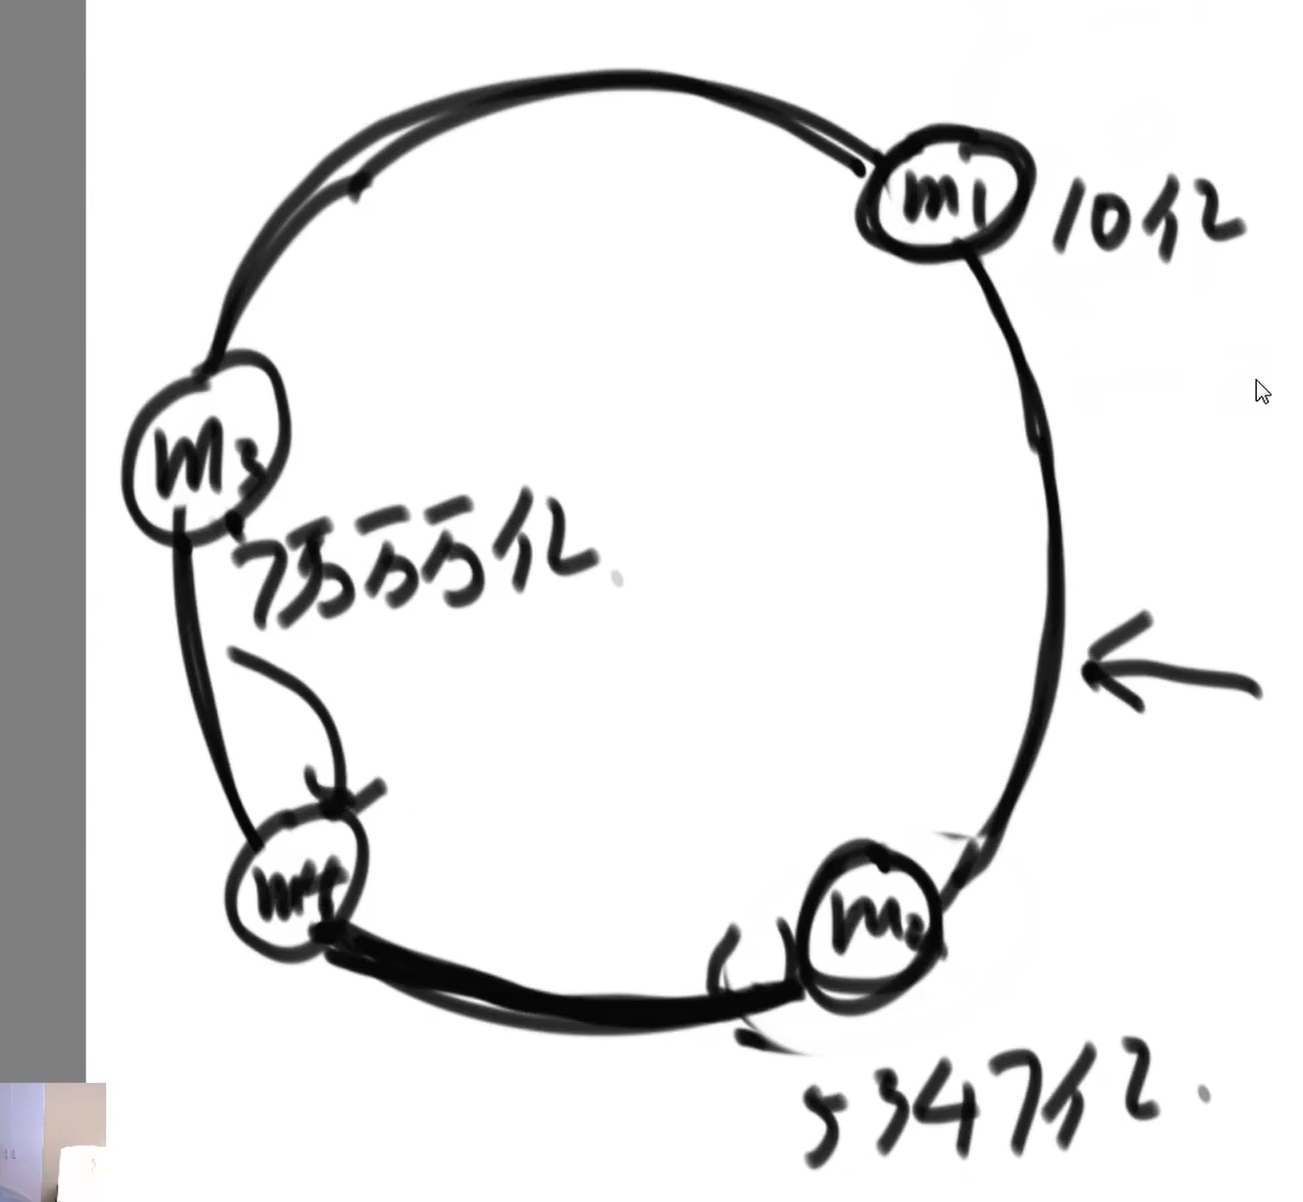 m1
10亿
m3
7万万万亿
m4
m2
5347亿